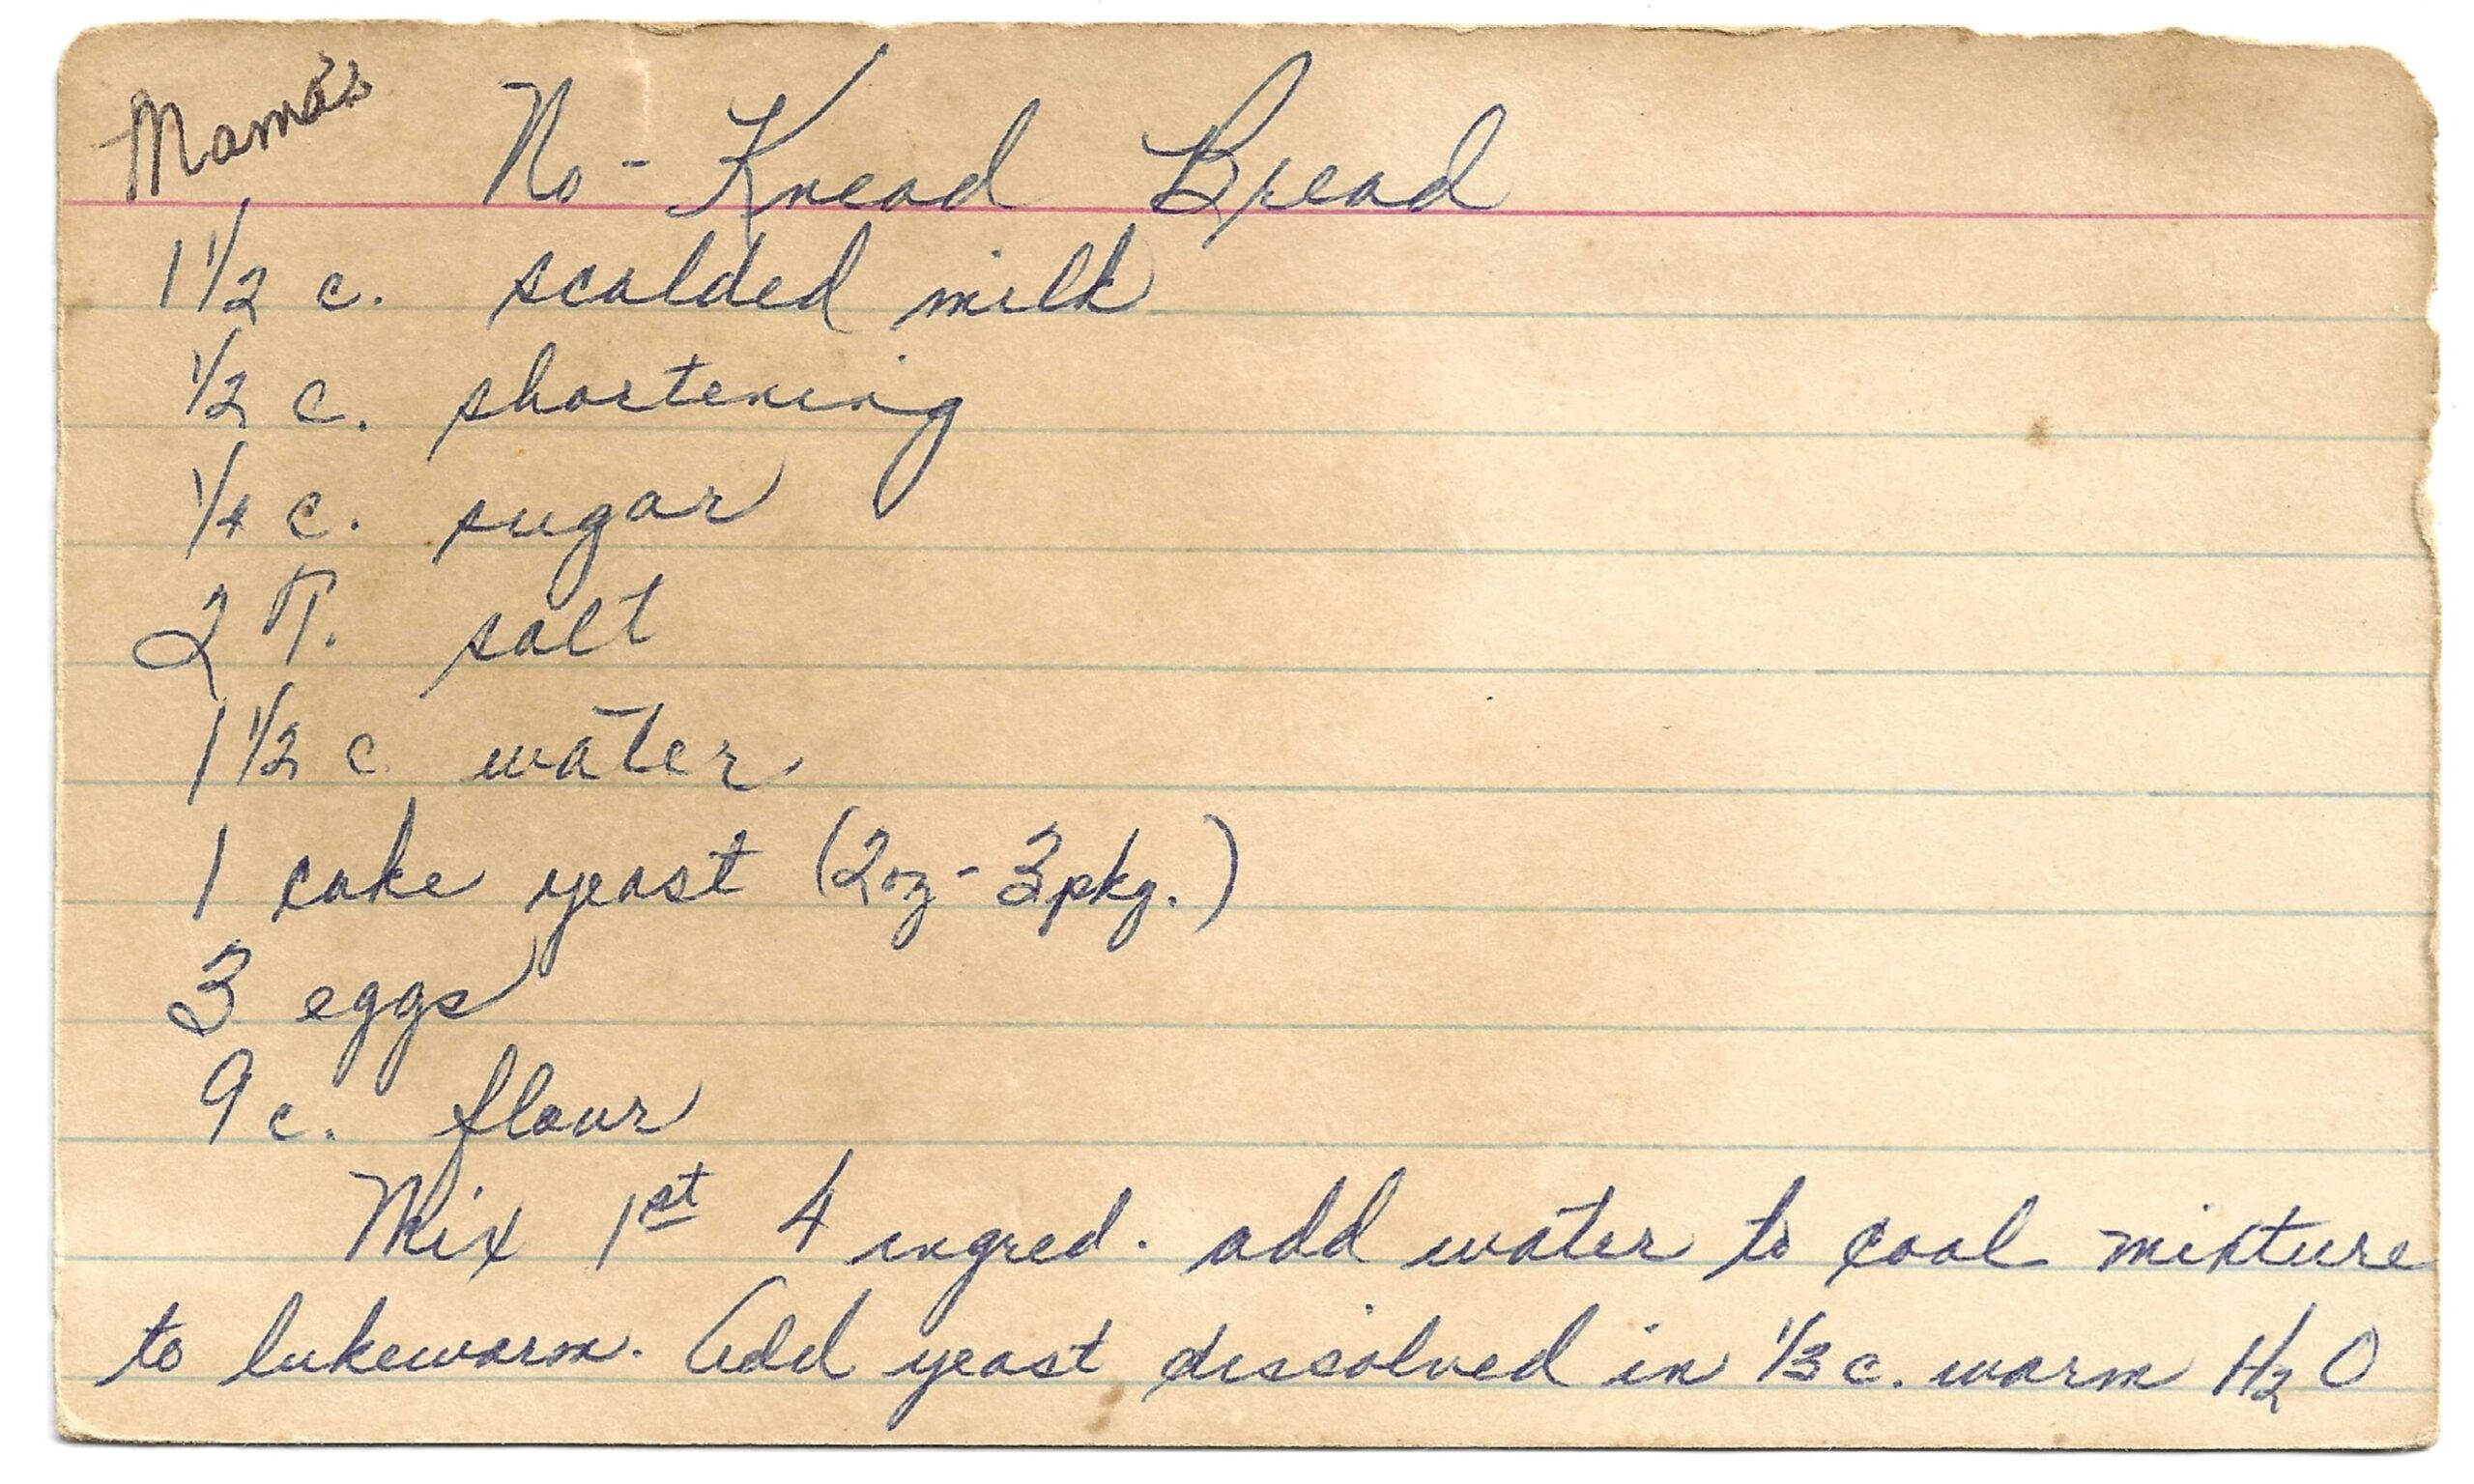 Mama's No-Knead Bread
1 1/2 c. scalded milk
1/2 c. shortening
1/4 c. sugar
2 T. salt
1 1/2 c water
1 cake yeast (2oz - 3pkg.)
3 eggs
9 c. flour
Mix 1st 4 ingred. add water to cool mixture
to lukewarm. Add yeast dissolved in 1/3 c. warm H2O